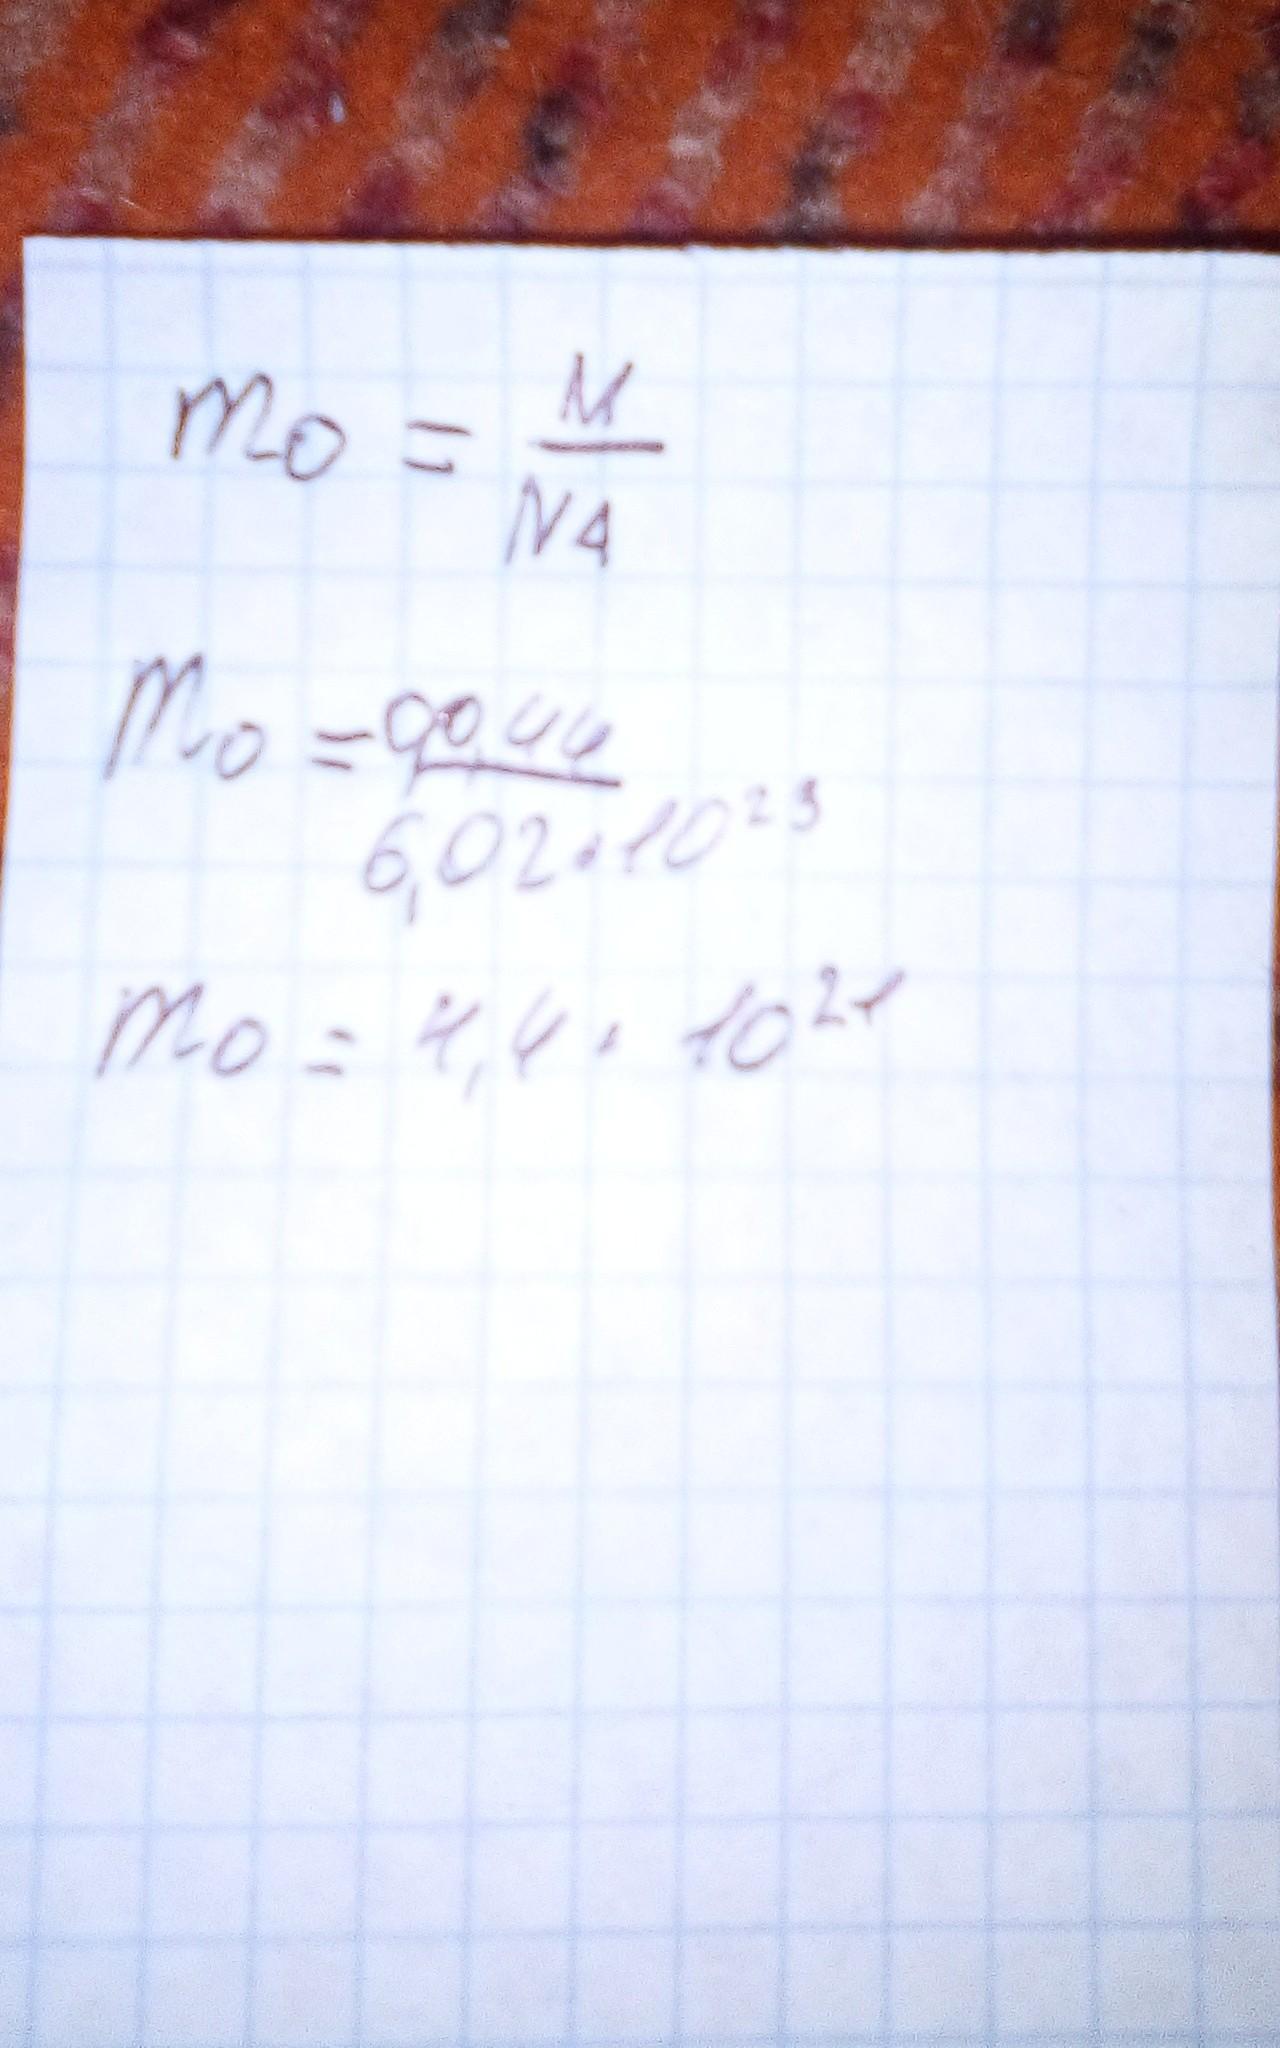 m0 = M/NA
m0 = 0,044/6,02·10²³
m0 = 7,4 · 10²¹